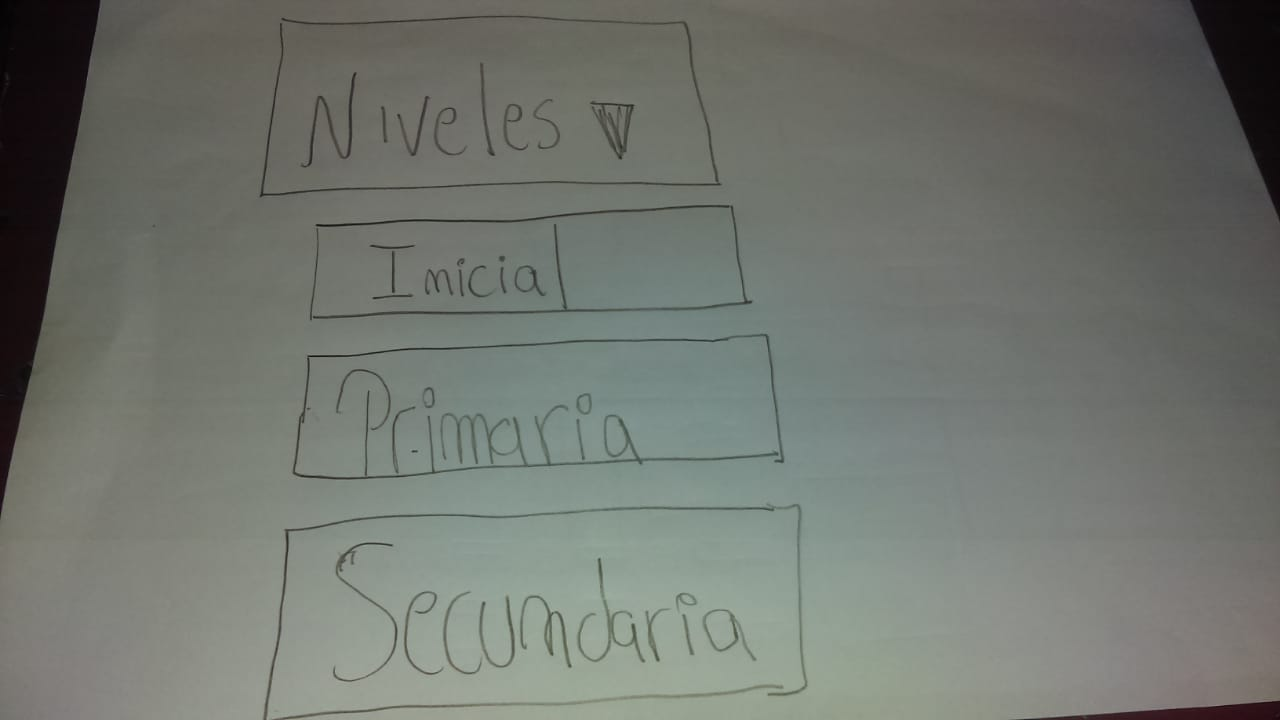 Niveles ▼
Inicial
Primaria
Secundaria